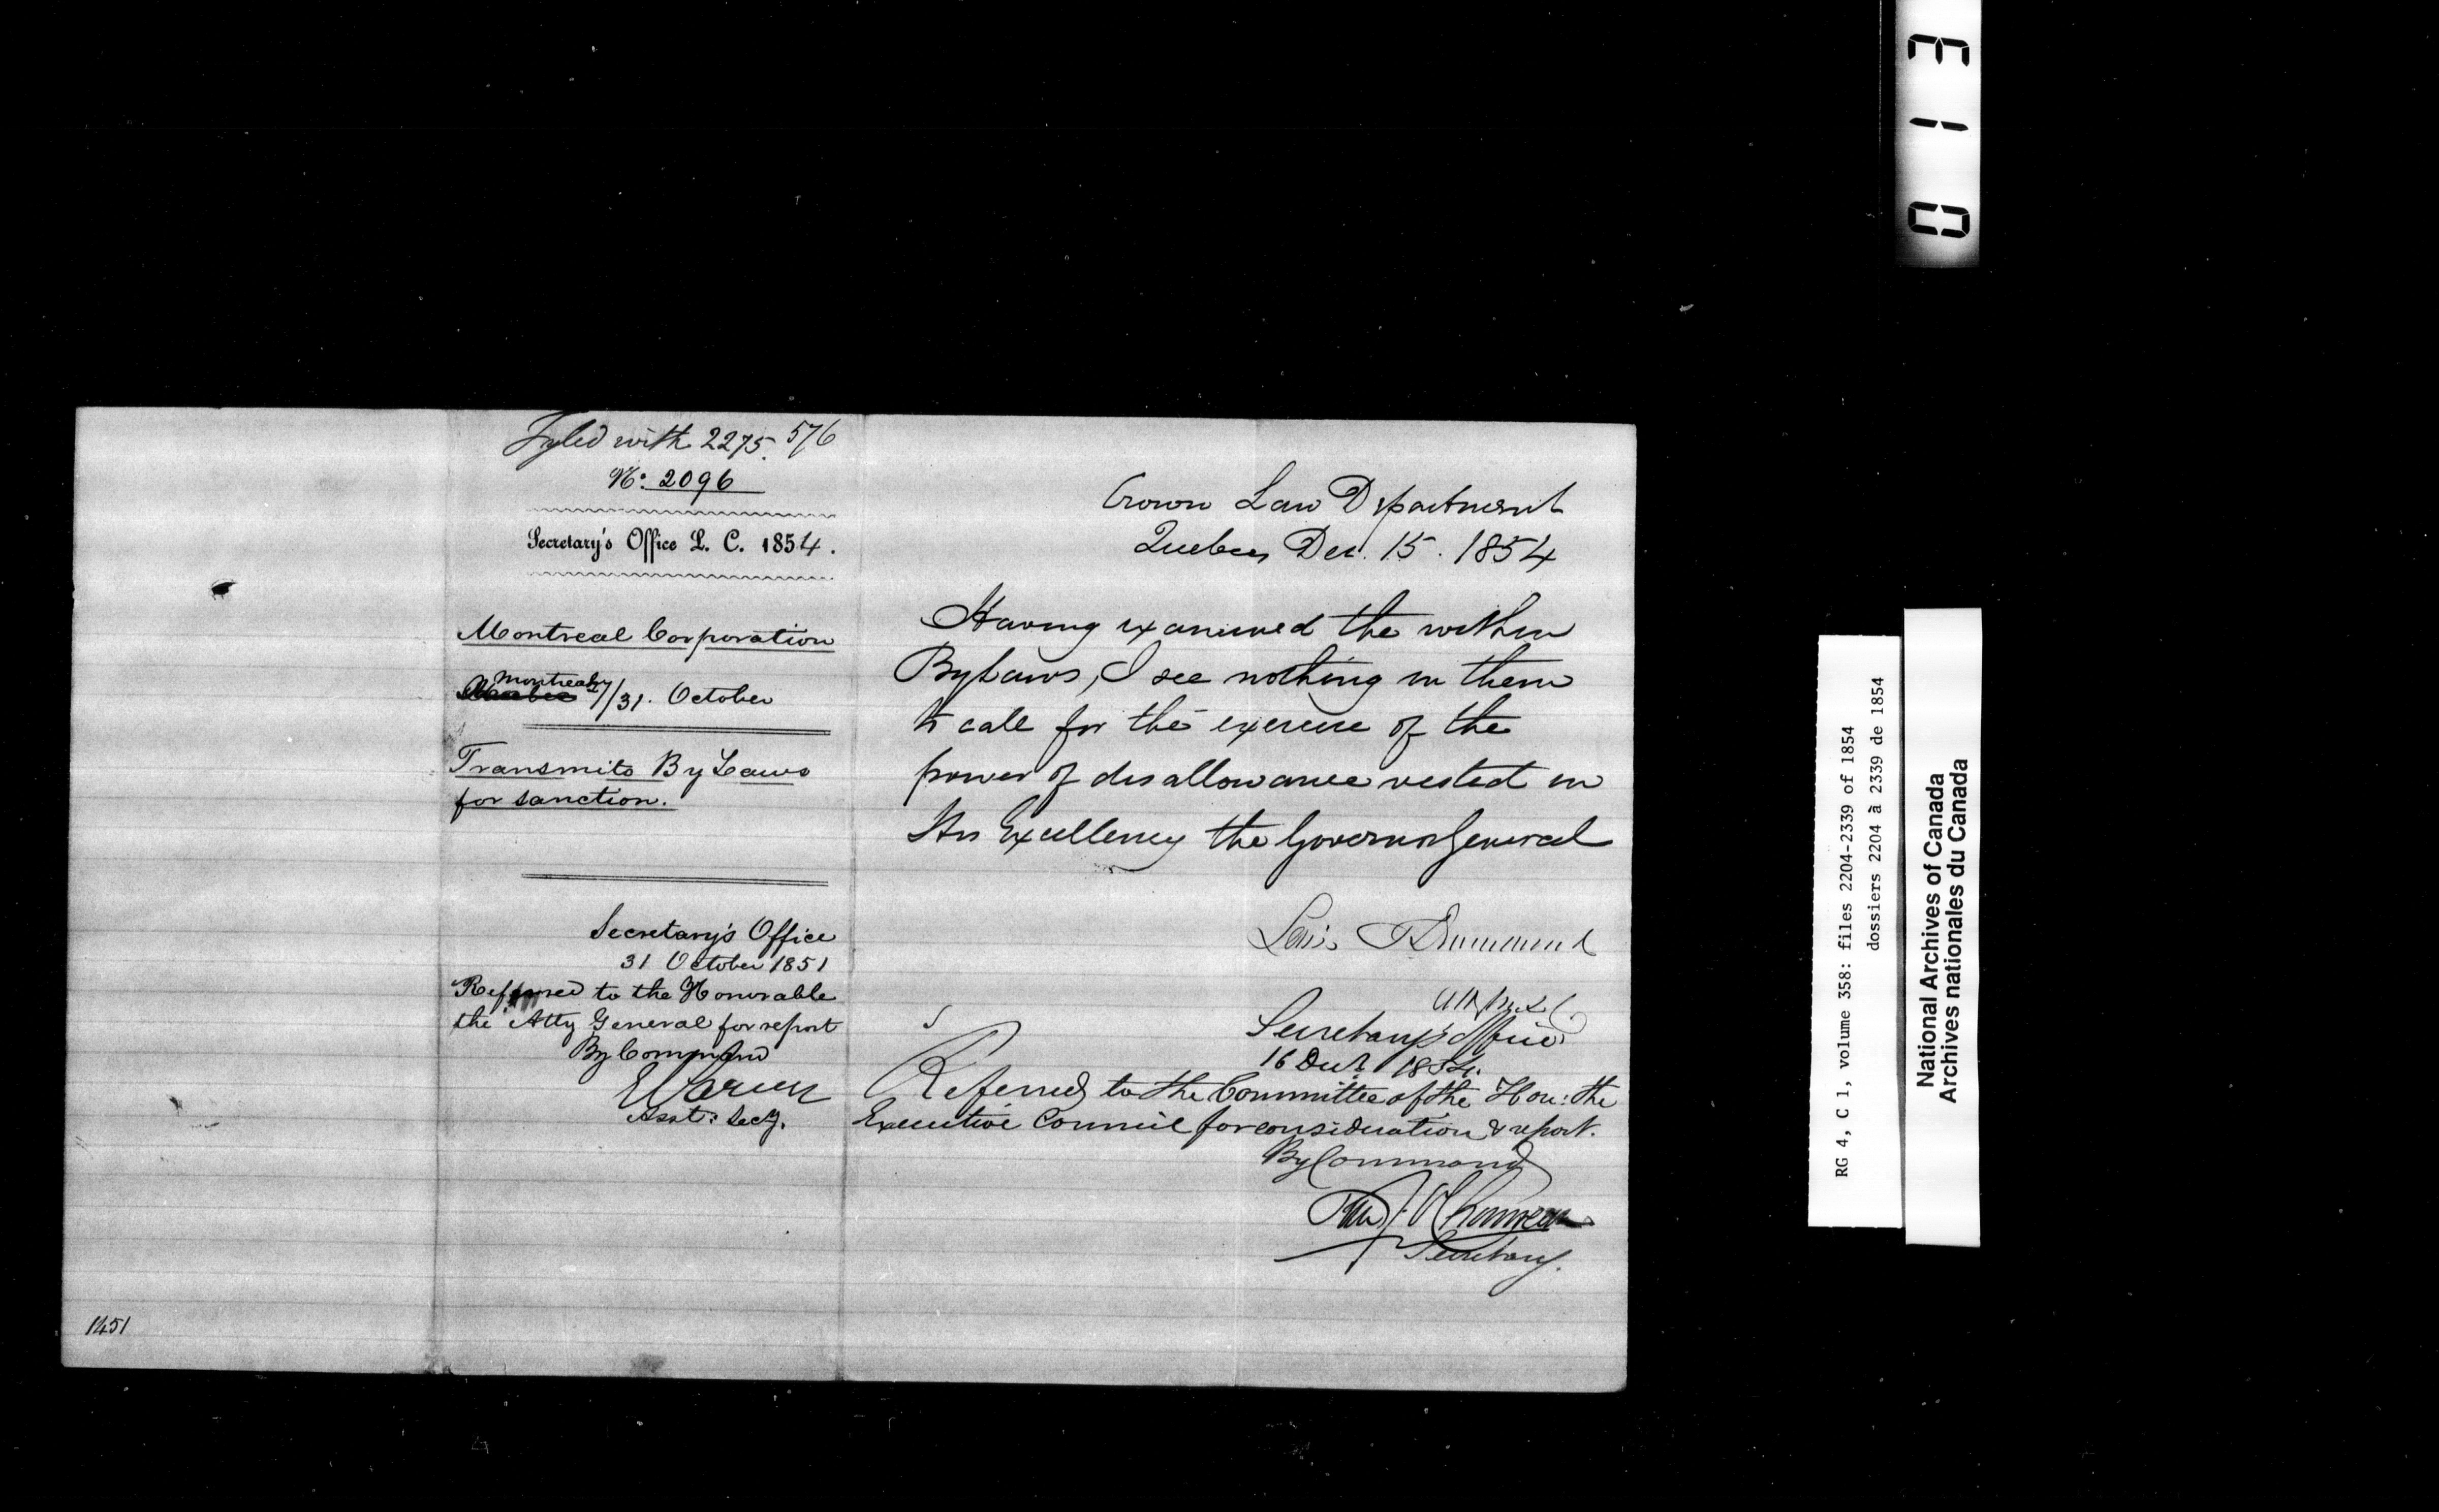 Fyled with 2275. 576
No: 2096
Secretary's Office L. C. 1854.
Montreal Corporation
Montreal 27/31. October
Transmits By Laws
for sanction.
Secretary's Office
31 October 1851
Referred to the Honorable
the Atty General for report
By Command
E Parent
Asst: Secy.
1451
Crown Law Department
Quebec Dec. 15. 1854
Having examined the within
By Laws, I see nothing in them
to call for the exercise of the
power of disallowance vested in
His Excellency the Governor General
Lewis T Drummond
Atty Genl L C
Secretary's Office
16 Decr. 1854.
Referred to the Committee of the Hon: the
Executive Council for consideration & report.
By Command
Chauveau
Secretary.
0 1 3
RG 4, C 1, volume 358: files 2204-2339 of 1854
dossiers 2204 à 2339 de 1854
National Archives of Canada
Archives nationales du Canada